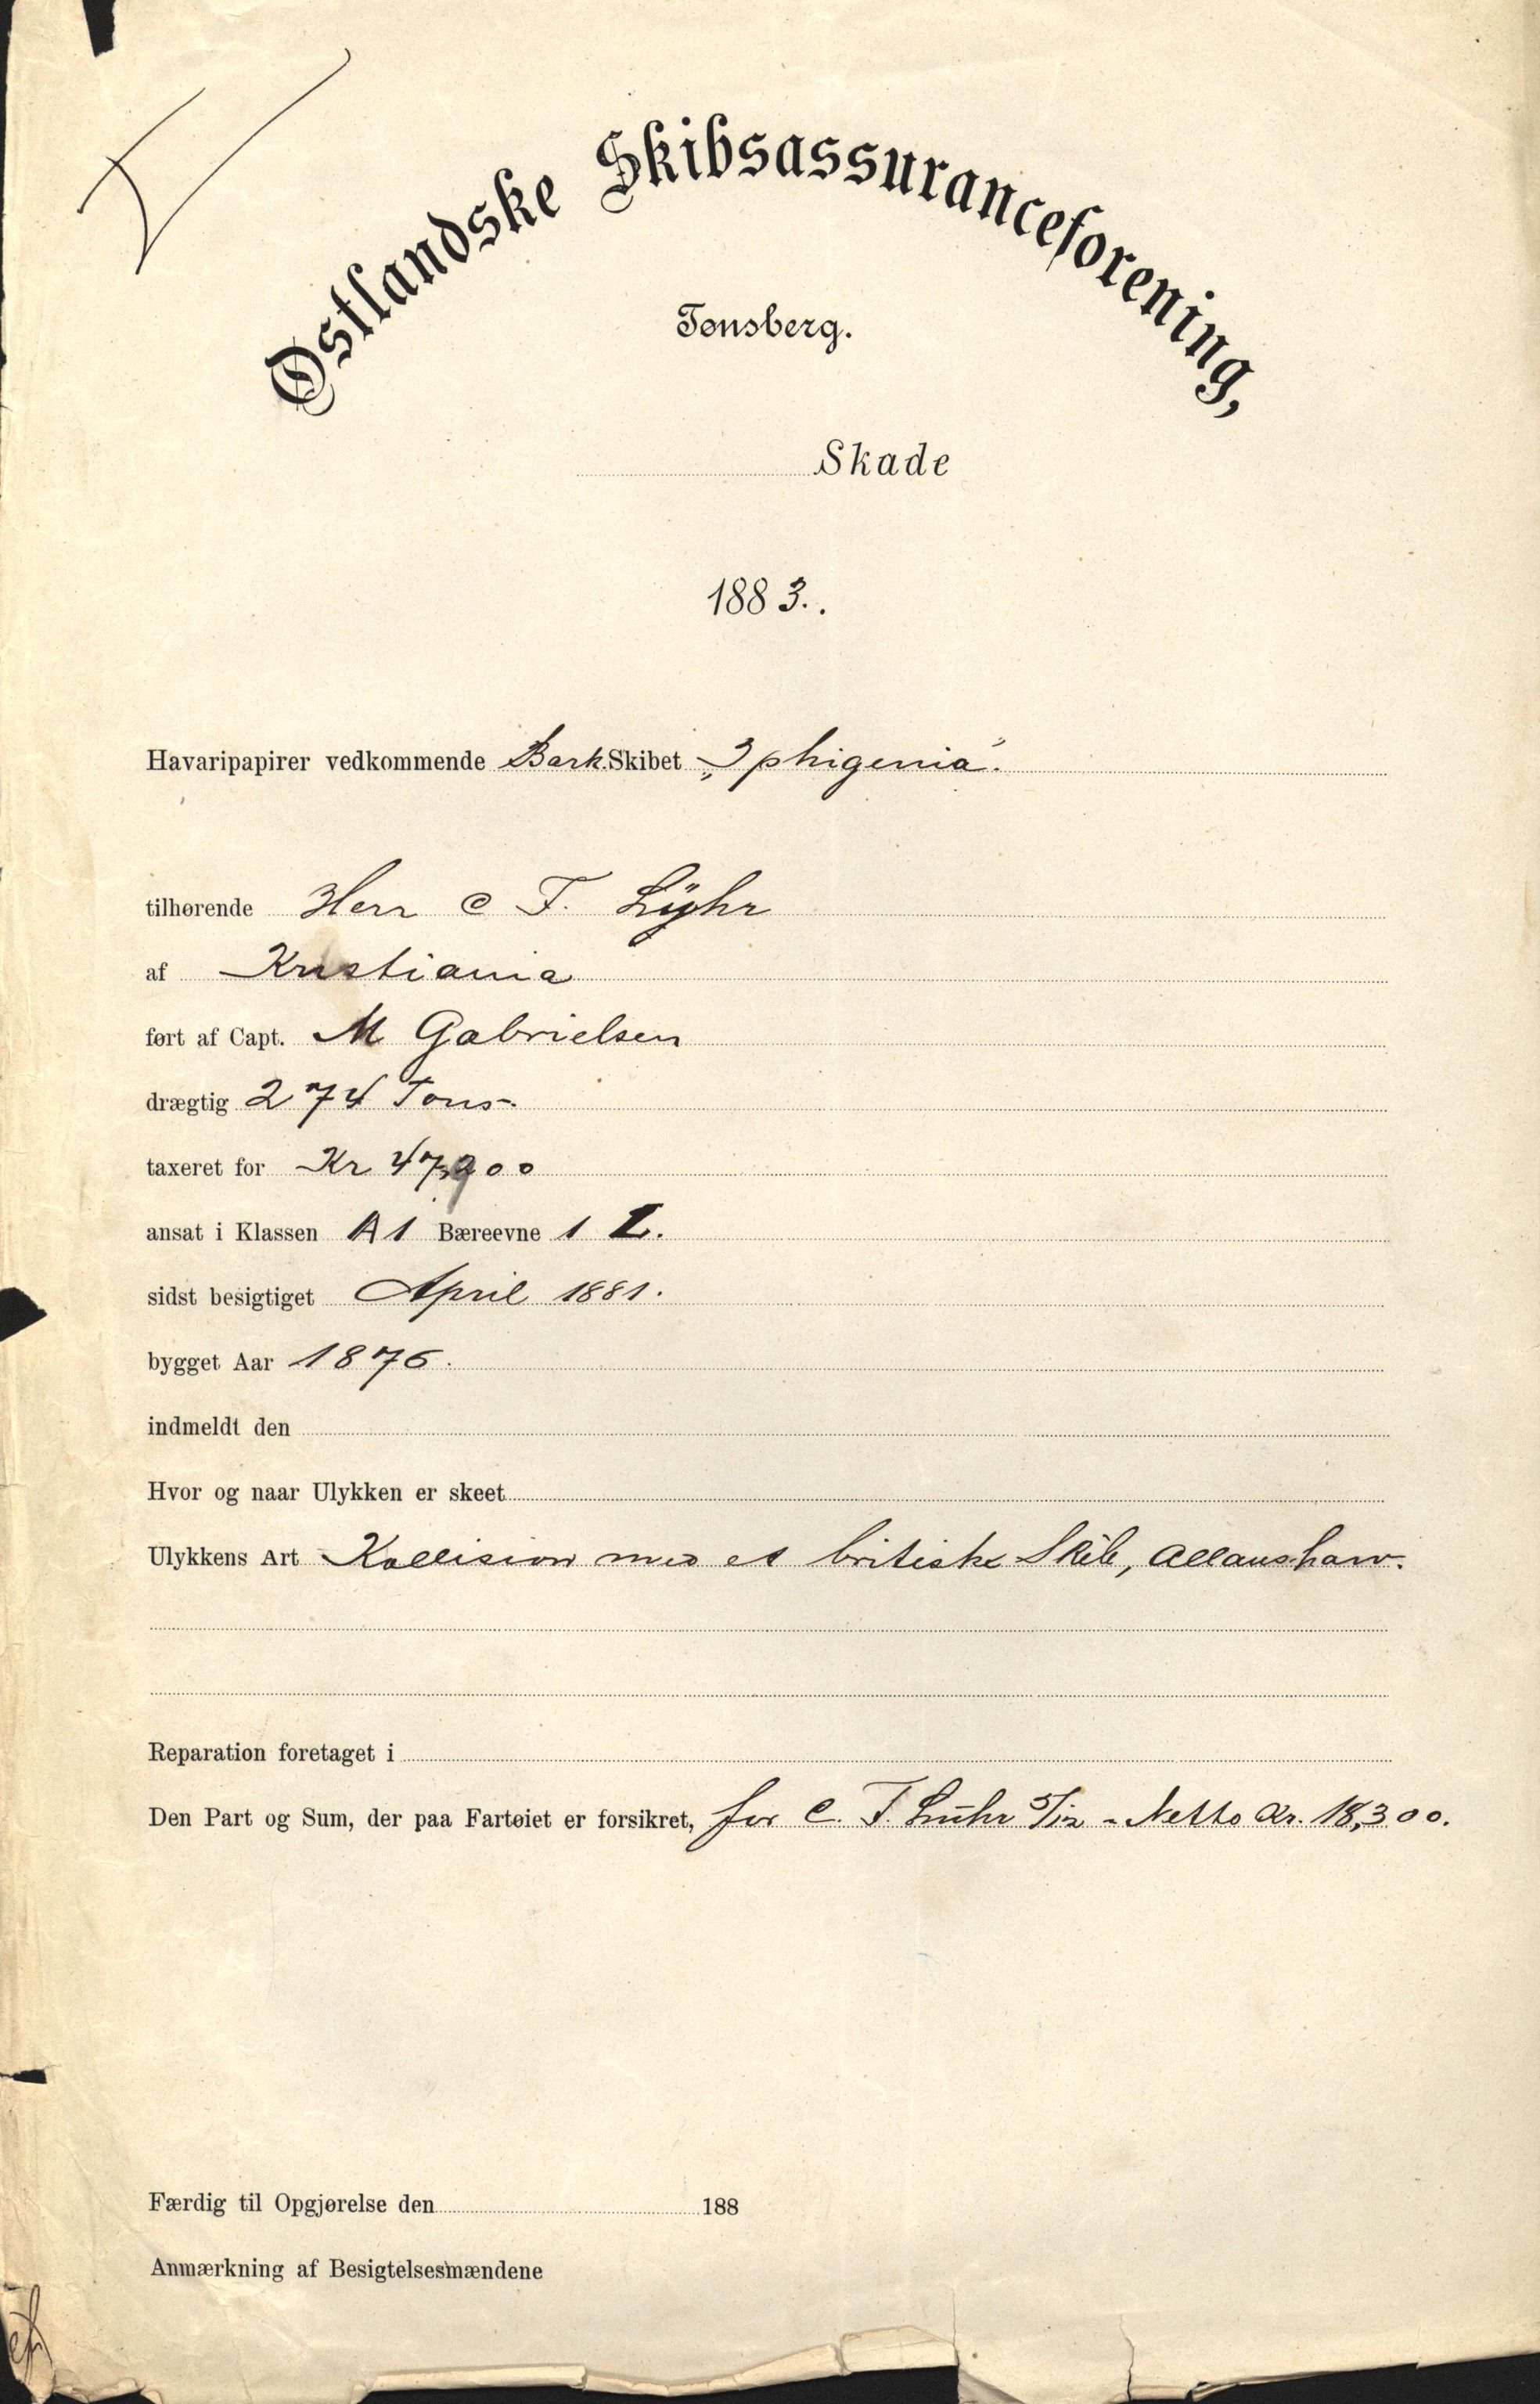 Østlandske Skibsassuranceforening,
Tønsberg.
Skade
1883.
Havaripapirer vedkommende Bark Skibet „Iphigenia".
tilhørende Herr C T. Lÿhr
af Kristiania
ført af Capt. M Gabrielsen
drægtig 274 Tons.
taxeret for Kr 47,900
ansat i Klassen A1 Bæreevne 1 I.
sidst besigtiget April 1881.
bygget Aar 1876.
indmeldt den
Hvor og naar Ulykken er skeet
Ulykkens Art Kollision med et britiske Skib, Allanshaw.
Reparation foretaget i
Den Part og Sum, der paa Fartøiet er forsikret, for C. T. Lühr 5/12 - Netto Kr. 18,300.
Færdig til Opgjørelse den 188
Anmærkning af Besigtelsesmændene